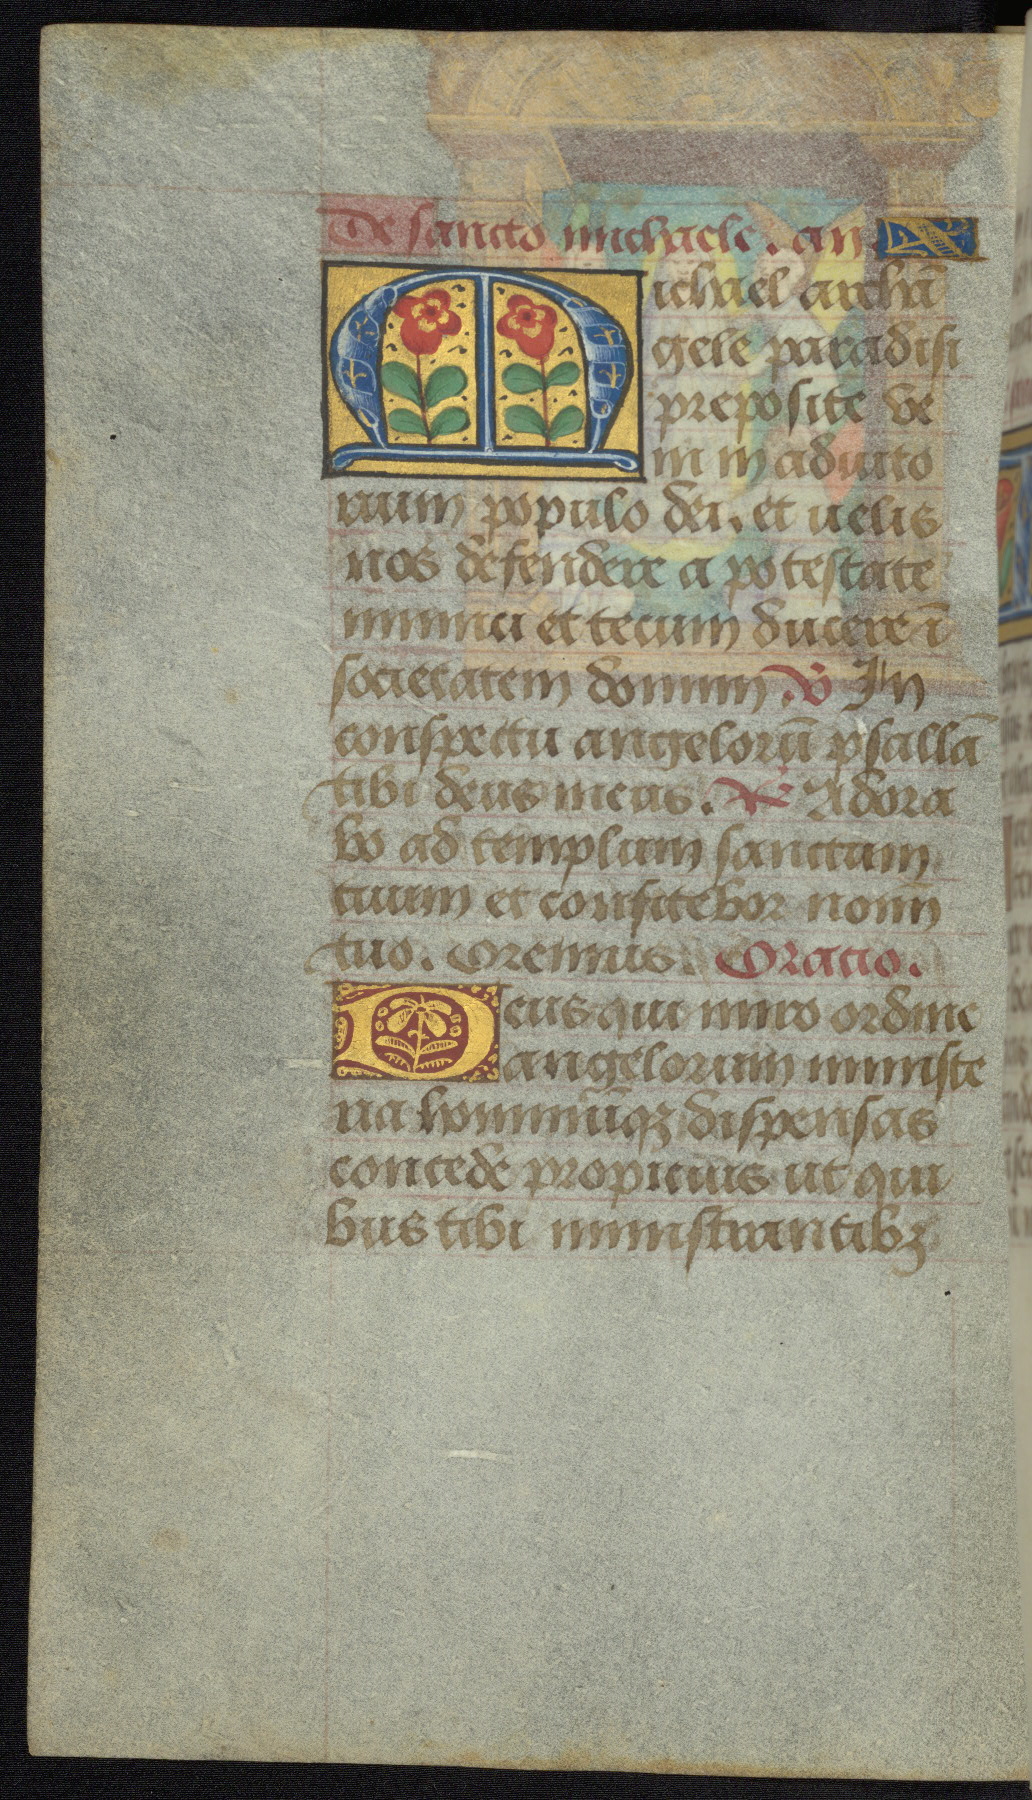 De sancto michaele. an.
Michael archā
gele paradisi
preposite ve
ni in adiuto
rium populo dei, et uelis
nos defendere a potestate
inimici et tecum ducere ī
societatem domini ℣ In
conspectu angelorū psallā
tibi deus meus. ℟ Adora
bo ad templum sanctum
tuum et confitebor nomīi
tuo. Oremus. Oratio.
Deus qui miro ordine
angelorum ministe
ria hominūqꝫ dispensas
concede propicius ut qui
bus tibi ministrantibꝫ